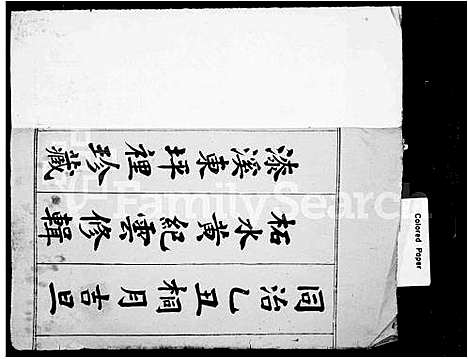 同治乙丑桐月吉旦
柘水黄紀雲修輯
漆溪東坪裡珍藏
Colored Paper
FamilySearch